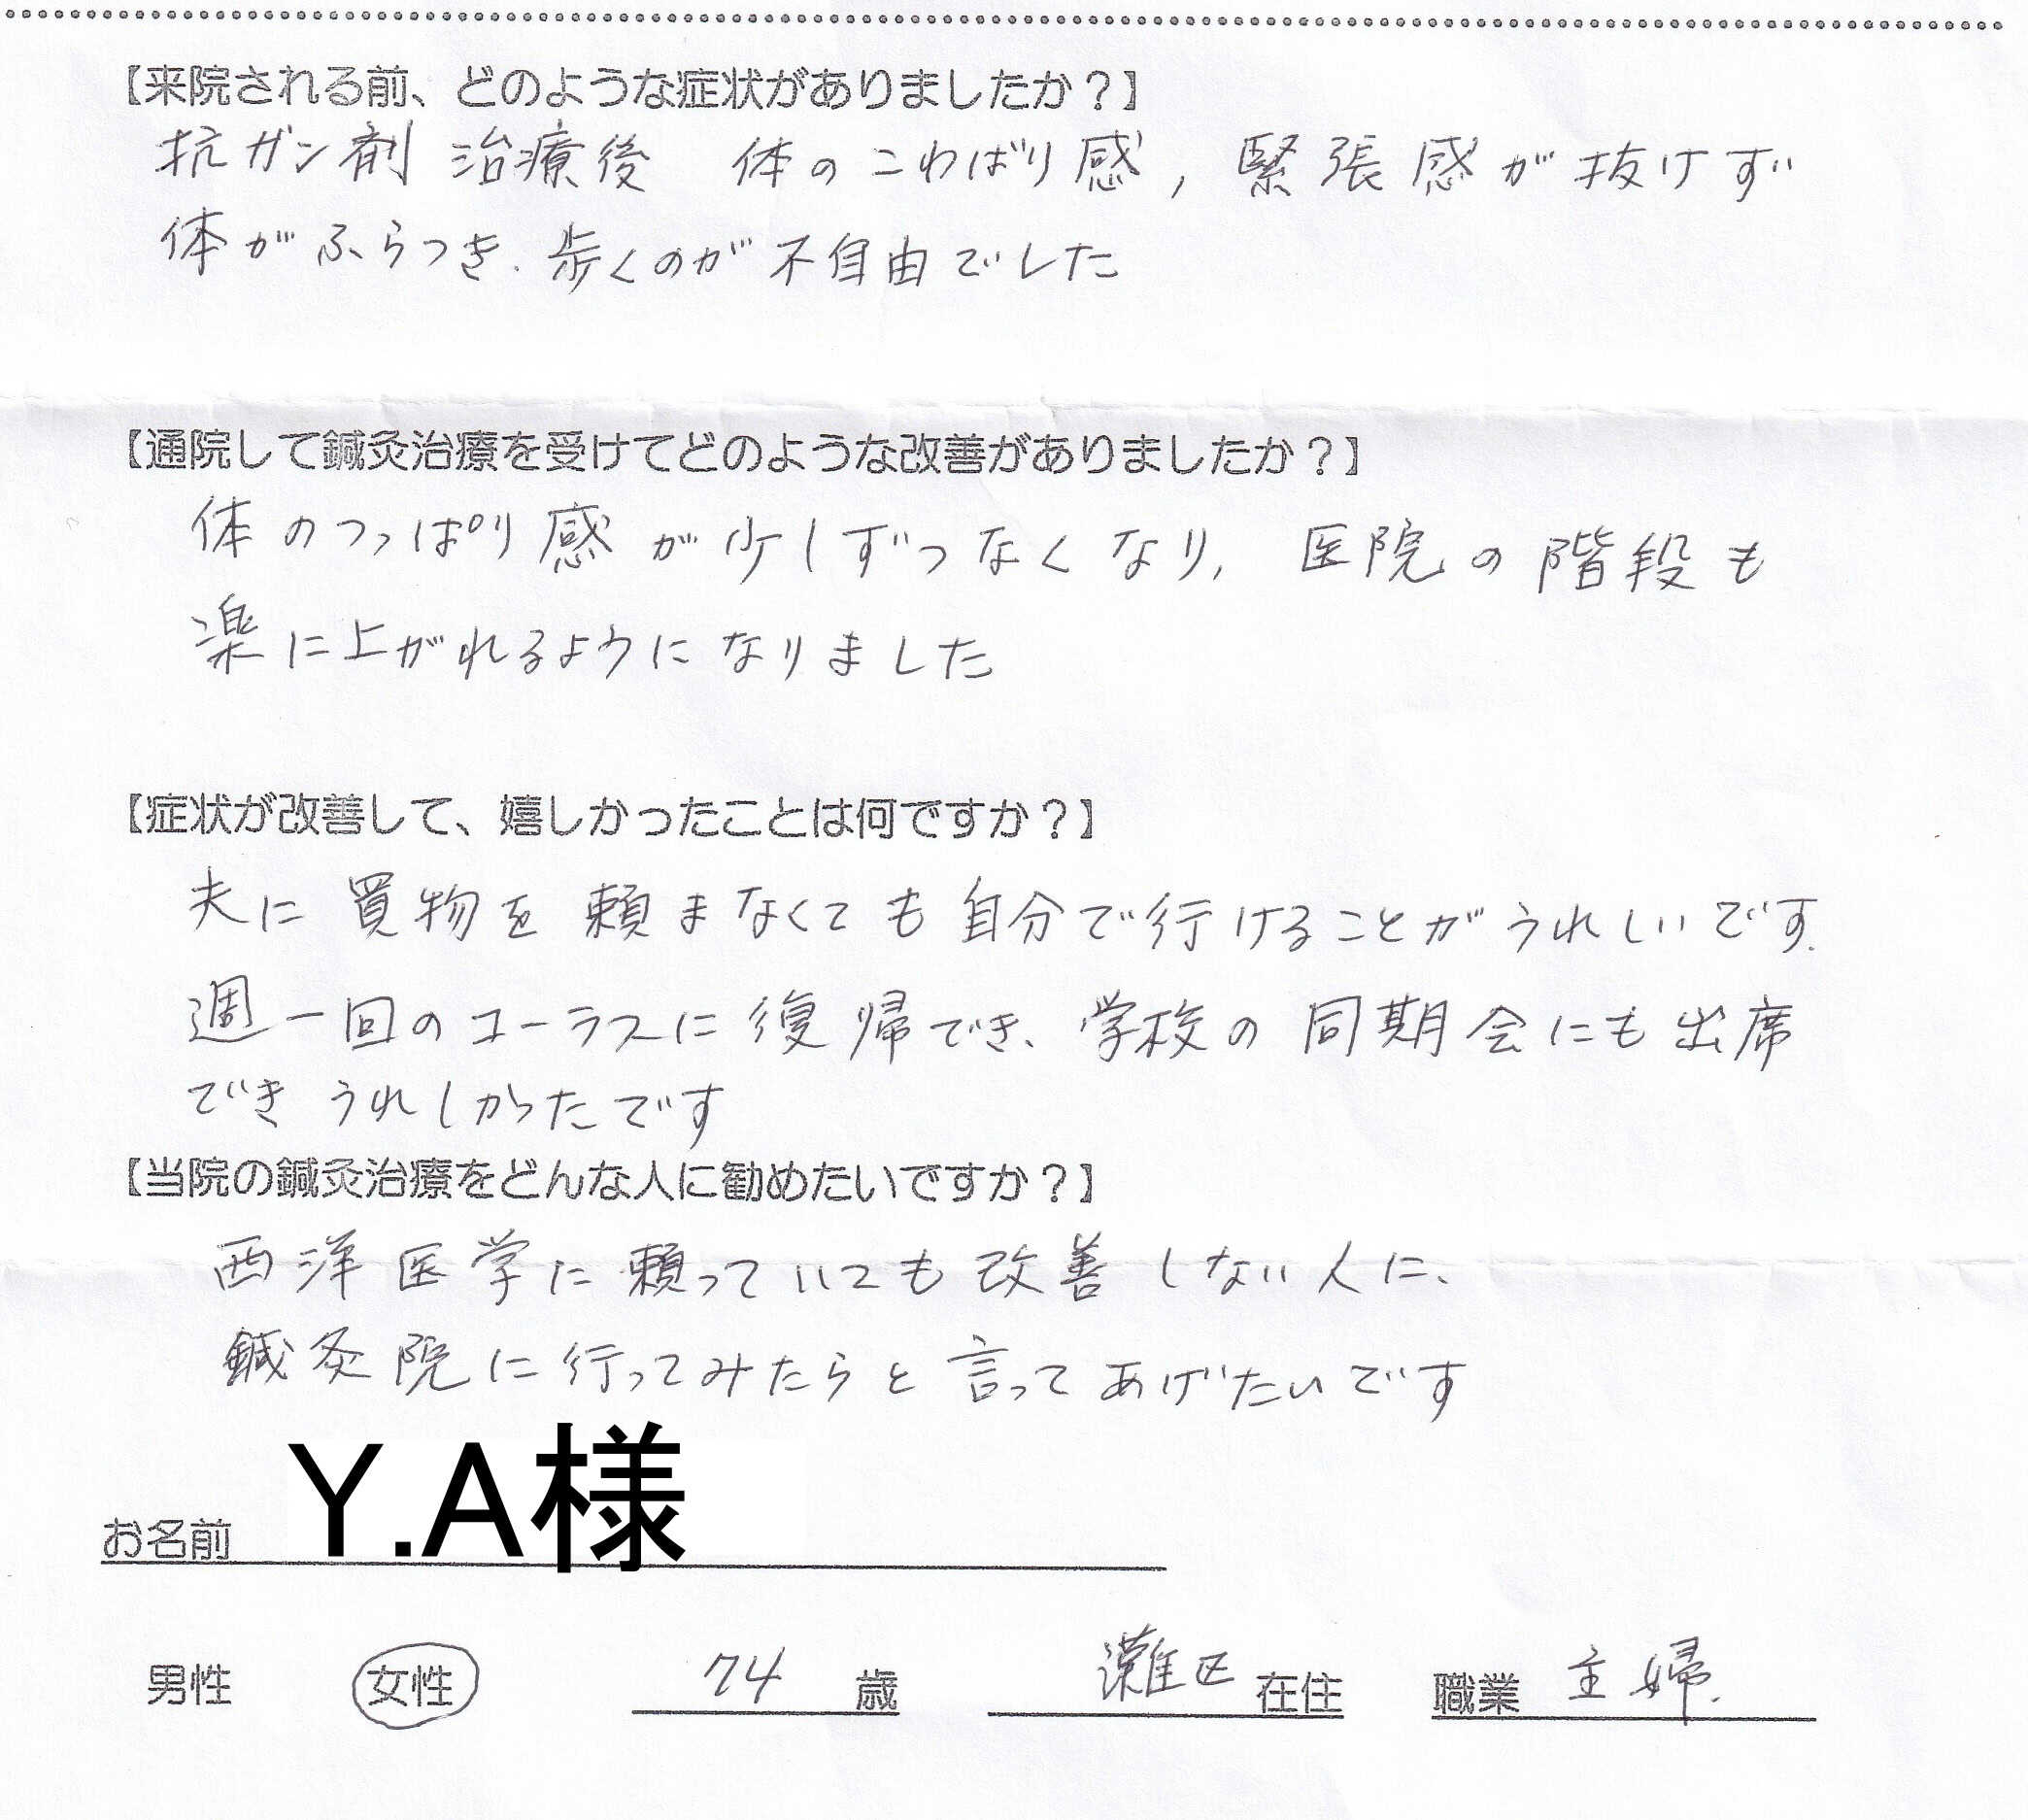 【来院される前、どのような症状がありましたか？】
抗ガン剤 治療後 体のこわばり感, 緊張感が抜けず
体がふらつき、歩くのが不自由でした
【通院して鍼灸治療を受けてどのような改善がありましたか？】
体のつっぱり感が少しずつなくなり, 医院の階段も
楽に上がれるようになりました
【症状が改善して、嬉しかったことは何ですか？】
夫に買物を頼まなくても自分で行けることがうれしいです.
週一回のコーラスに復帰でき、学校の同期会にも出席
できうれしかったです
【当院の鍼灸治療をどんな人に勧めたいですか？】
西洋医学に頼っていても改善しない人に、
鍼灸院に行ってみたらと言ってあげたいです
お名前 Y.A様
男性 女性 74 歳 灘区 在住 職業 主婦.